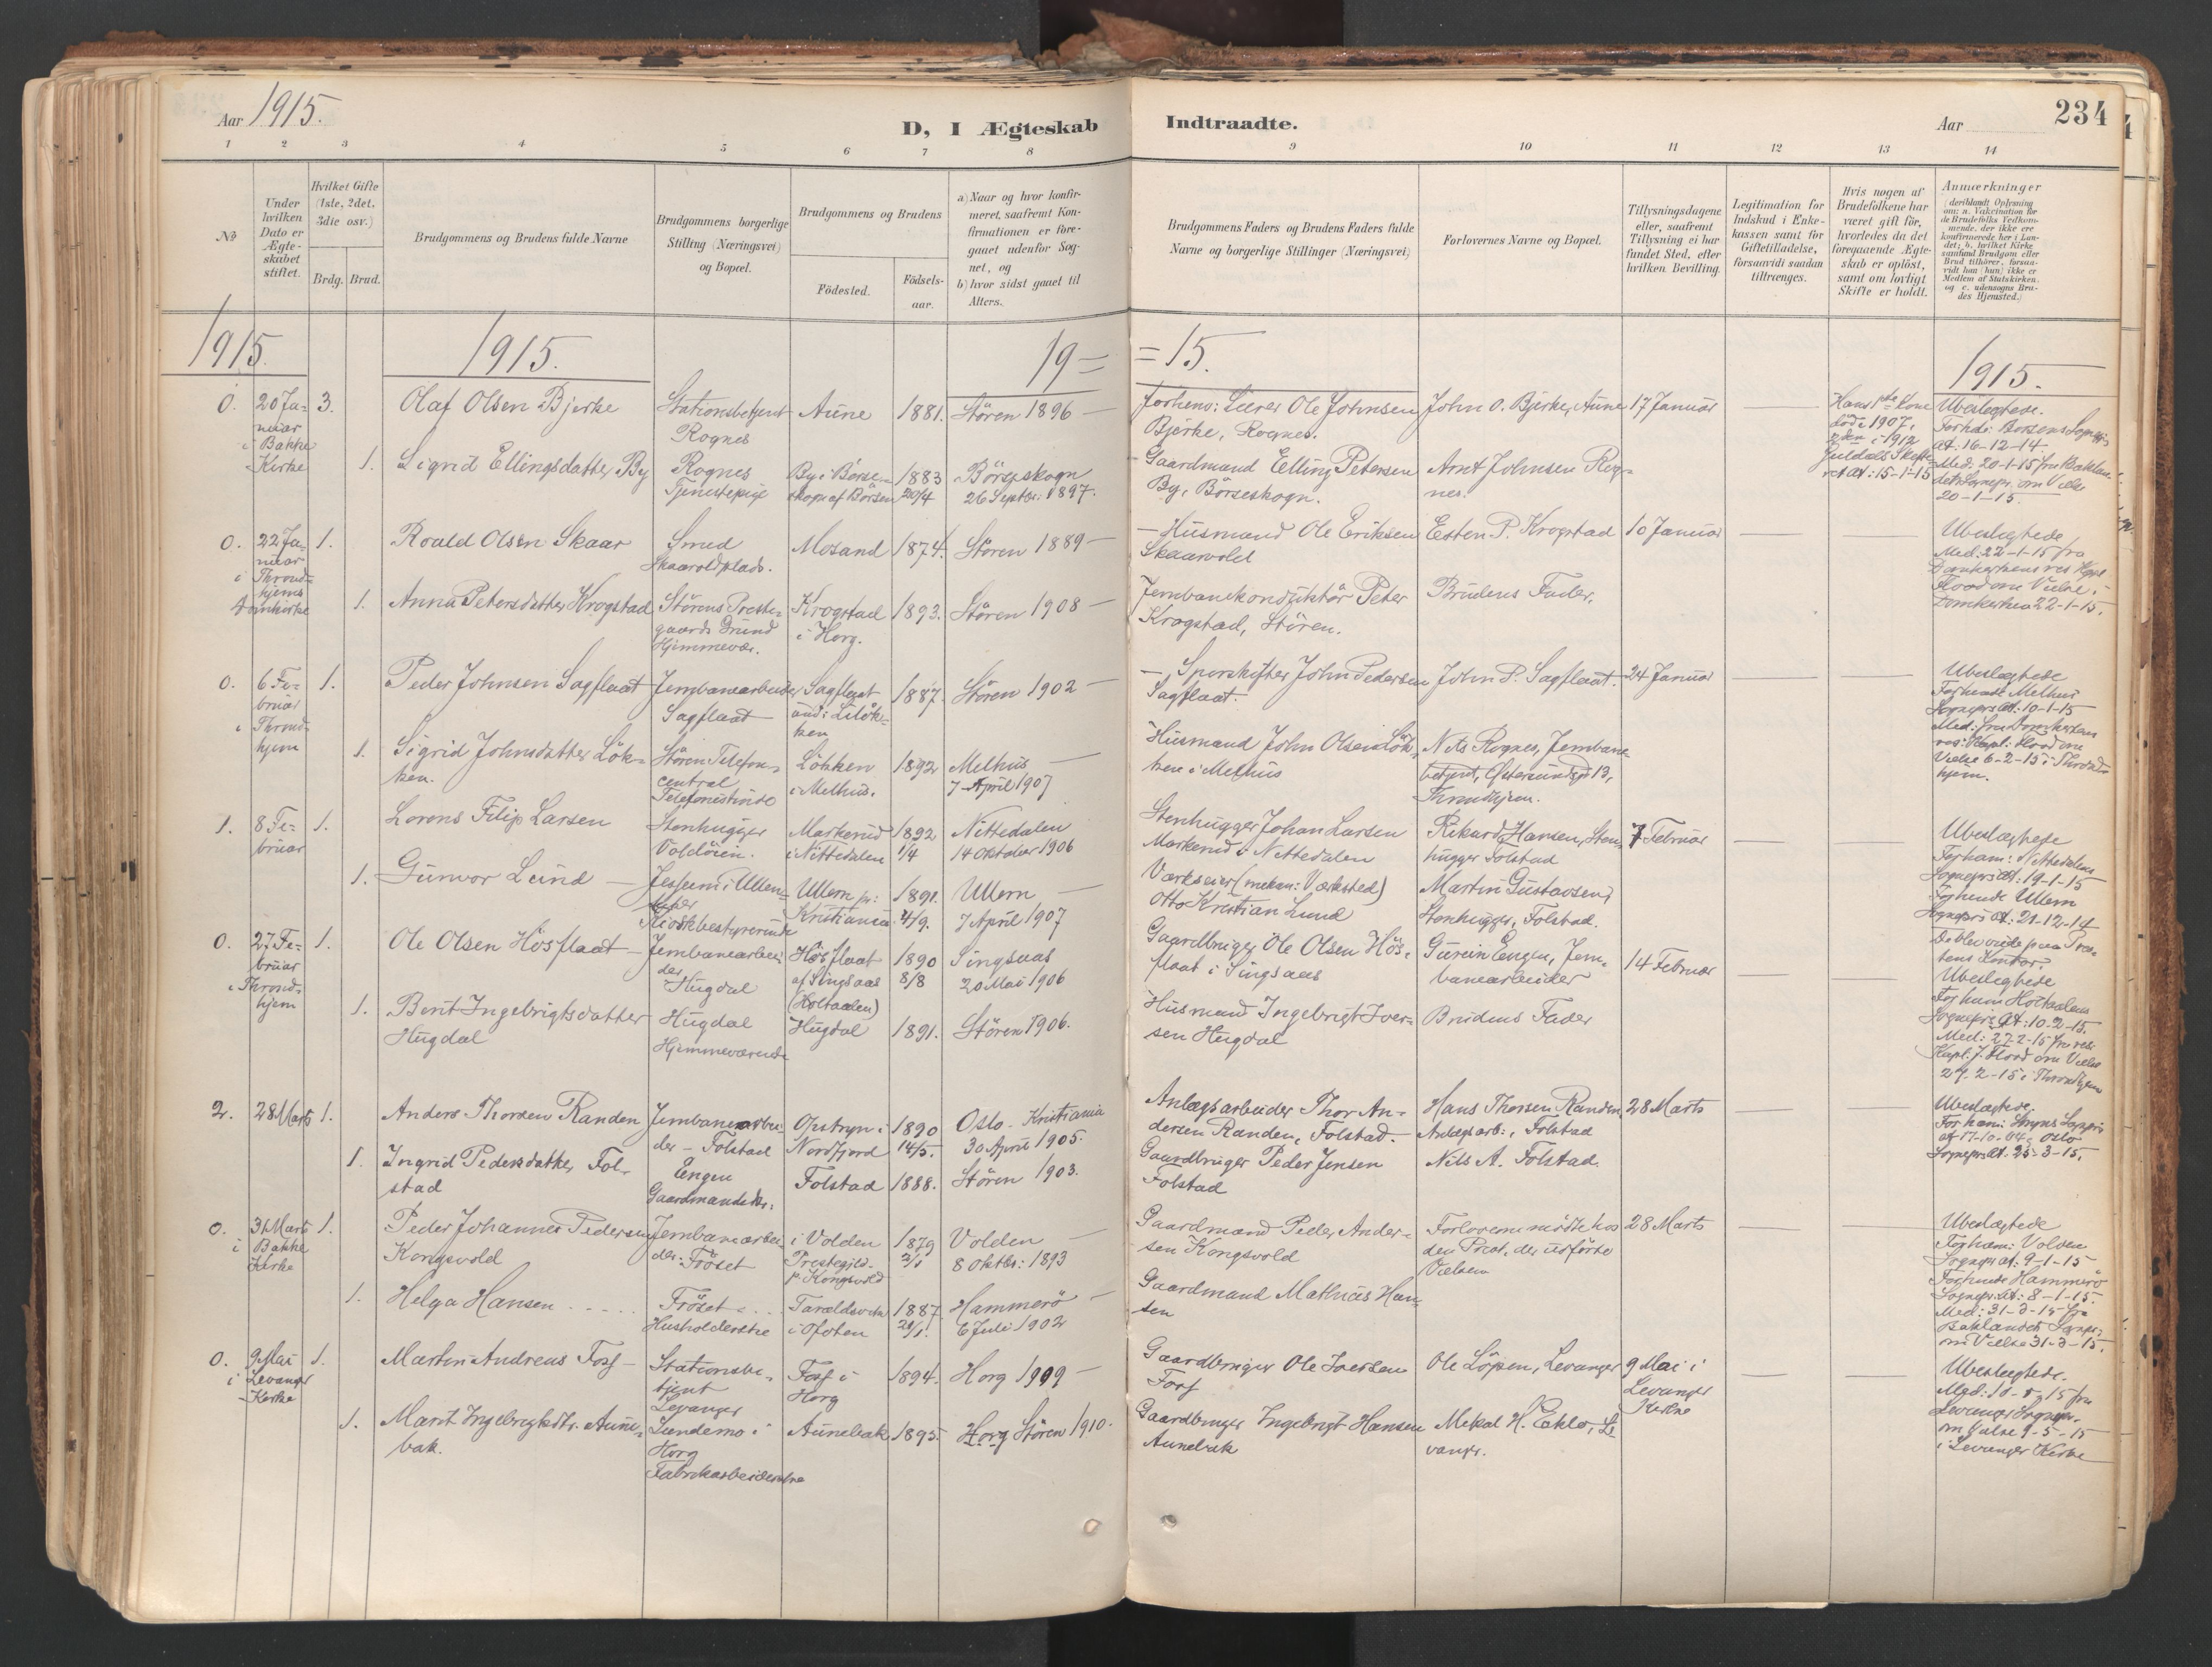 Aar 1915.
D, I Ægteskab
Indtraadte.
Aar
234
1 2 3 4 5 6 7 8 9 10 11 12 13 14
No
Under
hvilken
Dato er
Ægte-
skabet
stiftet.
Hvilket Gifte
(1ste, 2det,
3die osv.)
Brdg. Brud.
Brudgommens og Brudens fulde Navne
Brudgommens borgerlige
Stilling (Næringsvei)
og Bopæl.
Brudgommens og Brudens
Födested.
Födsels-
aar.
a) Naar og hvor konfir-
meret, saafremt Kon-
firmationen er fore-
gaaet udenfor Sog-
net, og
b) hvor sidst gaaet til
Alters.
Brudgommens Faders og Brudens Faders fulde
Navne og borgerlige Stillinger (Næringsvei)
Forlovernes Navne og Bopæl.
Tillysningsdagene
eller, saafremt
Tillysning ei har
fundet Sted, efter
hvilken Bevilling.
Legitimation for
Indskud i Enke-
kassen samt for
Giftetilladelse,
forsaavidt saadan
tiltrænges.
Hvis nogen af
Brudefolkene har
været gift för,
hvorledes da det
foregaaende Ægte-
skab er oplöst,
samt om lovligt
Skifte er holdt.
Anmærkninger
(deriblandt Oplysning
om: a. Vakcination for
de Brudefolks Vedkom-
mende, der ikke ere
konfirmerede her i Lan-
det; b. hvilket Kirke
samfund Brudgom eller
Brud tilhörer, forsaa-
vidt han (hun) ikke er
Medlem af Statskirken.
og c. udensogns Bru-
des Hjemsted.)
1915. 1915. 19= =15. 1915.
0. 20 Ja-
nuar
i Bakke
Kirke
3.
Olaf Olsen Bjerke
Stationsbetjent
Rognes
Aune
1881.
Stören 1896 —
forhenv: Leier Ole Johnsen
Bjerke, Rognes.
John O. Bjerke, Aune
17 Januar
Hans 1ste Kone
död i 1907,
2den i 1912
Guldals Skifte-
ret At: 15-1-15
Ubeslegtede.
Forh.de: Borsens Sognepr.
at: 16-12-14
Med: 20-1-15 fra Baklan-
dets Sognepr. om Vielse
20-1-15.
1.
Sigrid Ellingsdatter By
Rognes
Tjenestepige
By i Börse-
skogn af Börsen
1883
20/4
Börseskogn
26 Septbr: 1897.
Gaardmand Elling Petersen
By, Börseskogn.
Arnt Johnsen Rog-
nes.
0. 22 Ja-
nuar
i Thrond-
hjems
Domkirke
1.
Roald Olsen Skaar
Smed
Skaarvoldplads.
Mosand
1874.
Stören 1889 —
— Husmand Ole Eriksen
Skaarvold
Esten P. Krogstad
10 Januar
Ubeslegtede
Med: 22-1-15 fra
Domkirkens res Kapl
Flood om Vielse i
Domkirken 22-1-15.
1.
Anna Petersdatter Krogstad
Störens Preste-
gaards Grund
Hjemmevær.
Krogstad
i Horg.
1893.
Stören 1908 —
Jernbanekonduktör Peter
Krogstad, Stören.
Brudens Fader.
0. 6 Fe-
bruar
i Thrond-
hjem
1.
Peder Johnsen Sagflaat
Jernbanearbeider
Sagflaat
Sagflaat
1887.
Stören 1902 —
— Sporskifter John Pedersen
Sagflaat.
John P. Sagflaat.
24 Januar
Ubeslegtede
Forhende: Melhus
Sognepr. At: 10-1-15
Med: fra Domkirkens
res: Kapl: Flood om
Vielse 6-2-15 i Thrond-
hjem.
1.
Sigrid Johnsdatter Lök-
ken.
Stören Telefon-
central
Telefonistinde
Lökken
i Melhus.
1892
Melhus —
7 April 1907
Husmand John Olsen Lök-
ken i Melhus
Nils Rognes, Jernbane-
betjent, Östersundsgd 13,
Throndhjem.
1. 8 Fe-
bruar
1.
Lorens Filip Larsen
Stenhugger
Voldöien.
Markerud
i Nittedalen
1892
1/4
Nittedalen
14 Oktober 1906
Stenhugger Johan Larsen
Markerud i Nittedalen
Rikard Hansen, Sten-
hugger Folstad
7 Februar
Ubeslegtede
Forham: Nittedalens
Sognepr. At: 19-1-15
Forhende Ullern
Sognepr. At: 21-12-14
De blev viede paa Pres-
tens Kontor.
1.
Gunvor Lund —
Jessem i Ullen-
Kioskbestyrerinde
Ullern pr:
Kristiania
1891.
4/9.
Ullern —
7 April 1907
Værkseier (mekan: Værksted)
Otto Kristian Lund
Martin Gustavsen,
Stenhugger, Folstad.
0. 27 Fe-
bruar
i Thrond-
hjem
1.
Ole Olsen Hösflaat —
Jernbanearbei-
der
Hugdal
Hösflaat
af Singsaas
(Holtaalen)
1890
8/8
Singsaas
20 Mai 1906
Gaardbruger Ole Olsen Hös-
flaat i Singsaas
Gurein Engen, Jern-
banearbeider
14 Februar
Ubeslegtede
Forham Holtaalens
Sognepr. At: 10-2-15.
Med: 27-2-15 fra res:
Kapl: J. Flood om Vielse
27-2-15 i Throndhjem
1.
Berit Ingebrigtsdatter
Hugdal
Hugdal
Hjemmeværende
Hugdal
1891.
Stören 1906.
Husmand Ingebrigt Iver-
sen Hugdal
Brudens Fader
2. 28 Marts 1.
Anders Thorsen Randen
Jernbanearbei-
der — Folstad
Opstryn i
Nordfjord
1890
14/5.
Oslo - Kristiania
30 April 1905.
Anlægsarbeider Thor An-
dersen Randen, Folstad.
Hans Thorsen Randen
Anlægsarb:, Folstad
28 Marts
Ubeslegtede.
For ham: Stryns Sognepr.
af 17-10-44, Oslo
Sognepr. At. 25-3-15.
1.
Ingrid Pedersdatter Fol-
stad
Engen
Gaardmandsdtr:
Folstad
1888.
Stören 1903.
Gaardbruger Peder Jensen
Folstad
Nils A. Folstad.
0. 31 Marts
i Bakke
Kirke
1.
Peder Johannes Pedersen
Kongsvold
Jernbanearbei-
der: Fröset
i Volden
Prestegjld.
p. Kongsvold
1879
2/1
Volden —
8 Oktbr: 1893
Gaardmand Peder Ander-
sen Kongsvold
Forloverne mödte hos
den Prest, der udförte
Vielsen
28 Marts
Ubeslegtede
Forham: Volden
Sognepr. at: 9-1-15
Forhende Hammerö
Sognepr. At: 8-1-15.
Med: 31-3-15 fra
Baklandets Sognepr:
om Vielse 31-3-15.
1.
Helga Hansen
Fröset
Husholderske
Taraldsvik
i Ofoten
1887
Hammerö —
6 Juli 1902
Gaardmand Mathias Han-
sen
0. 9 Mai
i Levanger
Kirke
1.
Martin Andreas Foss —
Stationsbe-
tjent
Levanger
Foss i
Horg
1894.
Horg 1909 —
Gaardbruger Ole Iversen
Foss
Ole Löpen, Levanger
9 Mai i
Levanger
Kirke
Ubeslegtede.
Med: 10-5-15 fra
Levanger Sognepr.
om Vielse 9-5-15
i Levanger Kirke
1.
Marit Ingebrigtsdtr. Aune-
bak.
Lundemo i
Horg
Fabrikarbeiderske
Aunebak
1895.
Horg Stören 1910.
Gaardbruger Ingebrigt Hansen
Aunebak
Mekal H. Eklo, Le
vanger.